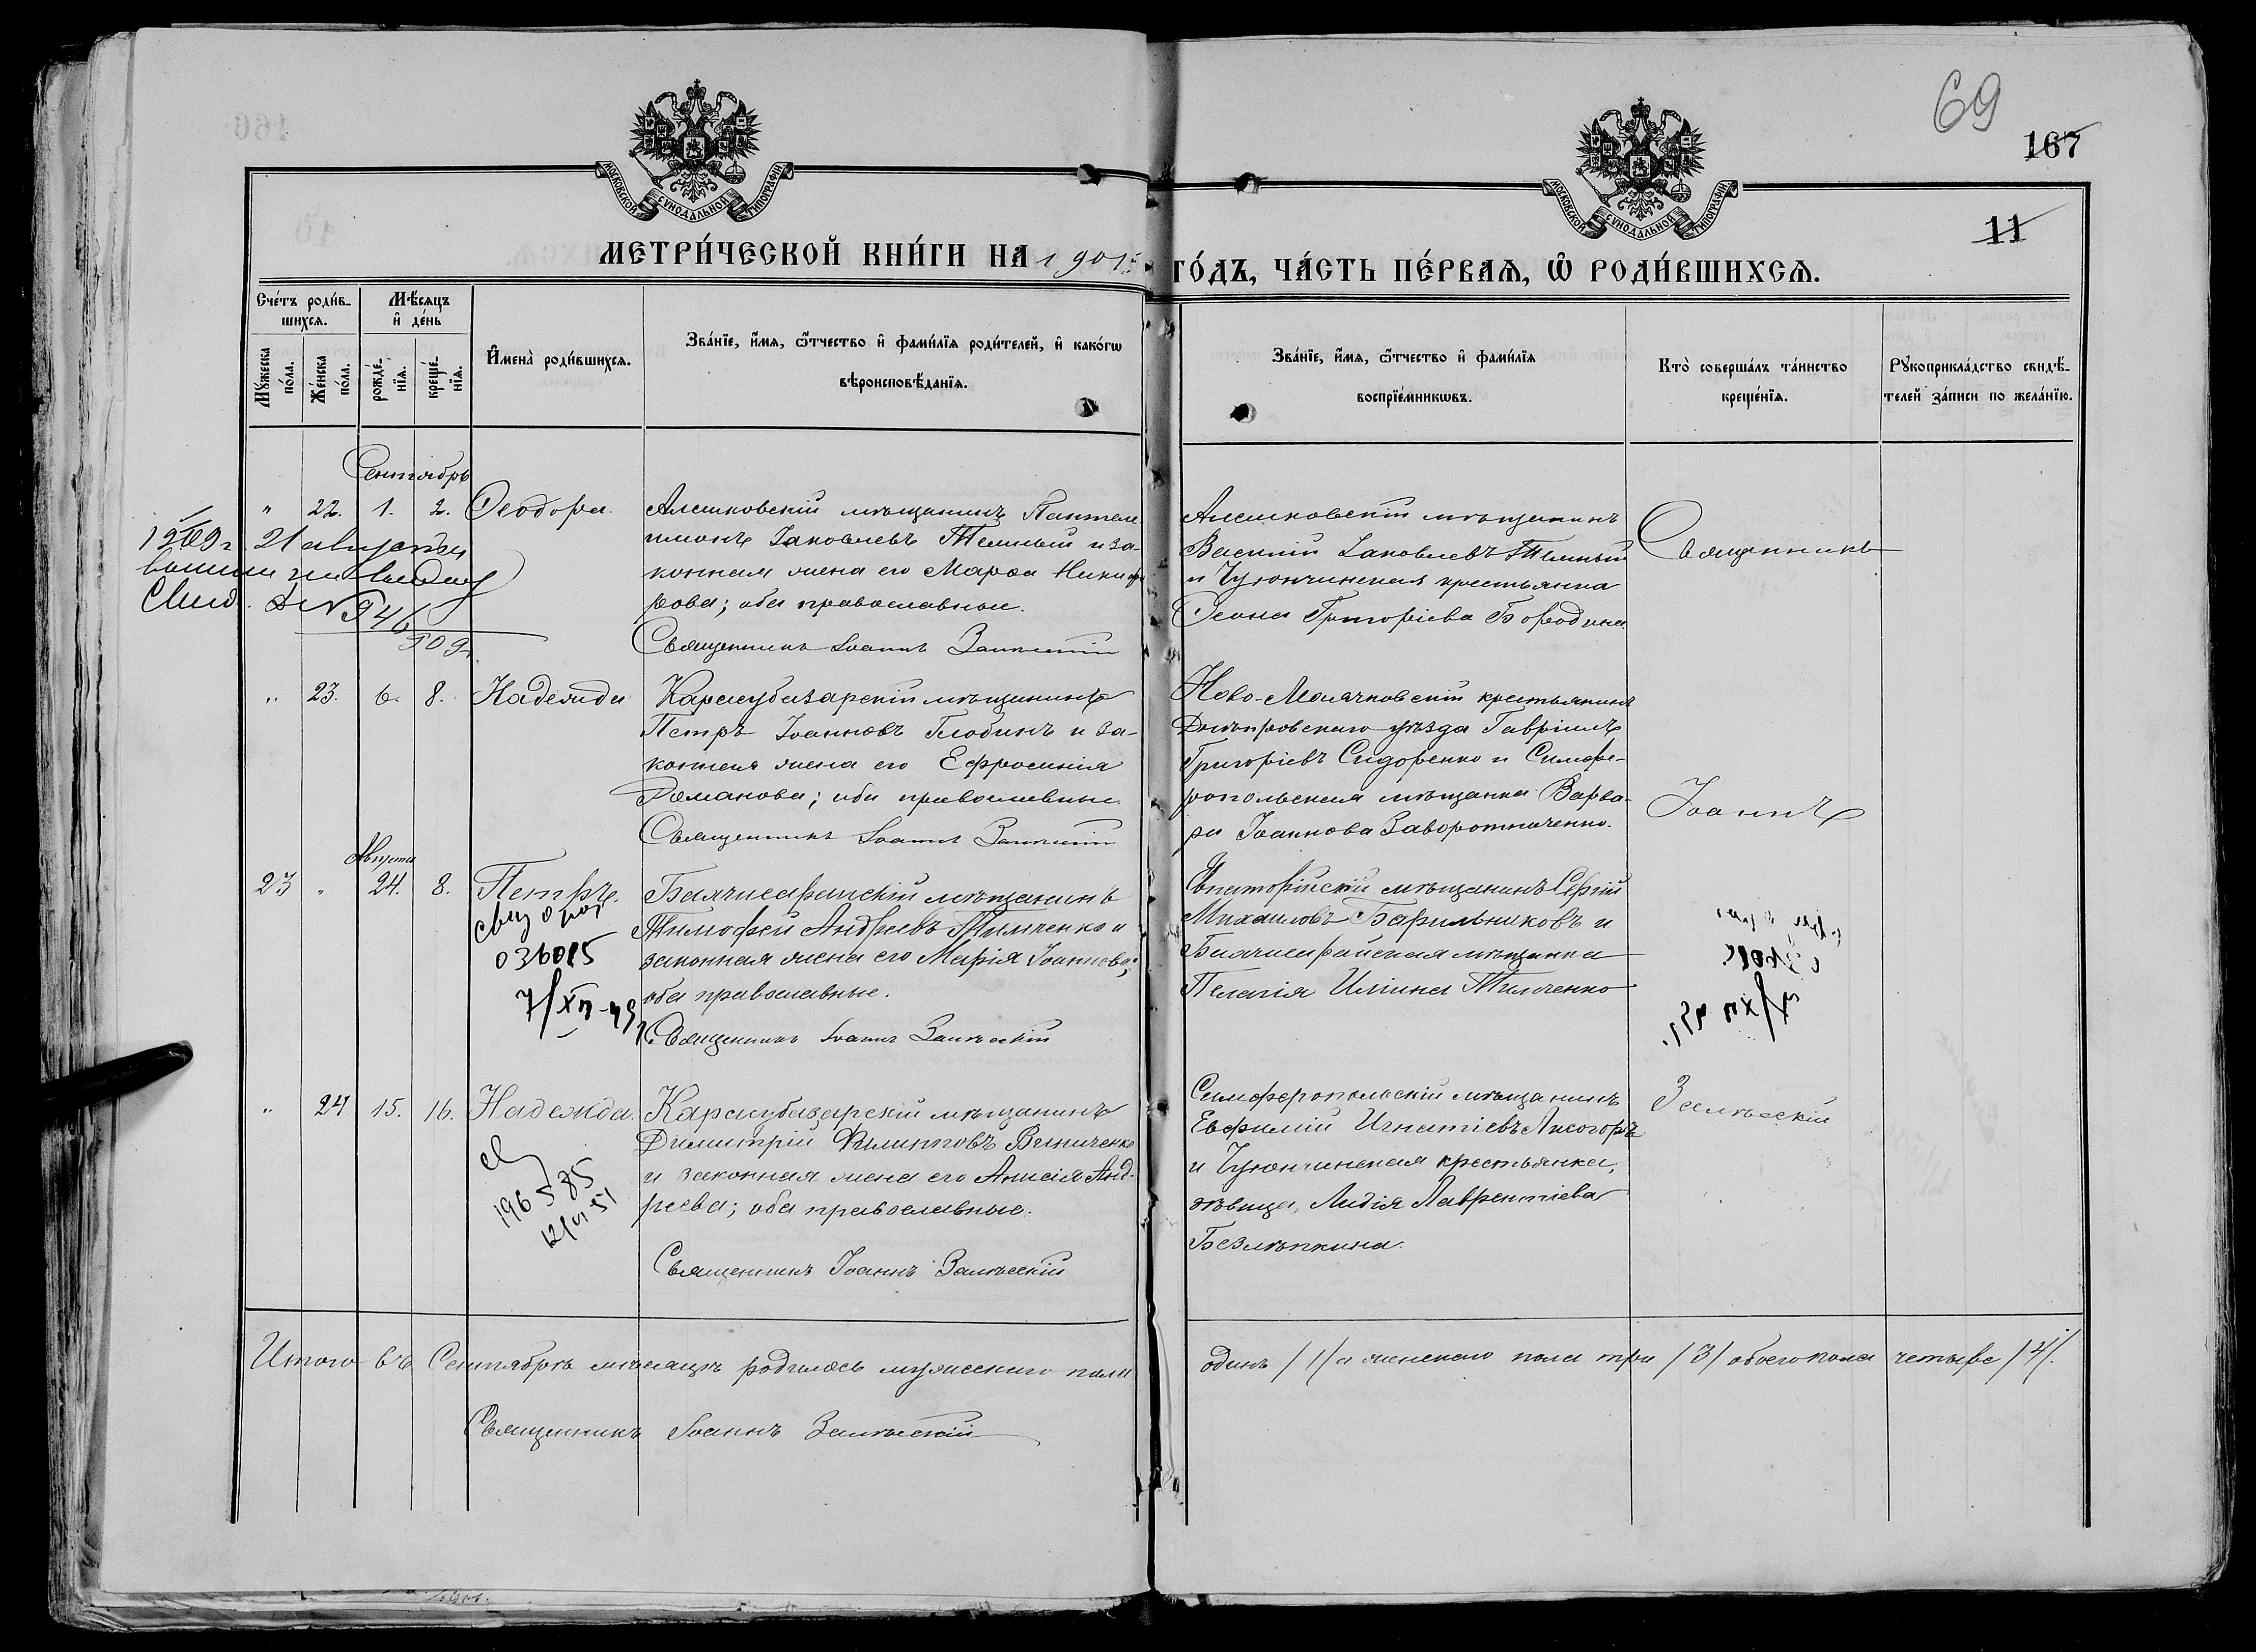 69
167
11
МОСКОВСКОЙ СѴНОДАЛЬНОЙ ТИПОГРАФІИ
МОСКОВСКОЙ СѴНОДАЛЬНОЙ ТИПОГРАФІИ
МЕТРИ́ЧЕСКОЙ КНИ́ГИ НА 1901
ГО́ДЪ, ЧА́СТЬ ПЕ́РВАЯ, Ѡ РОДИ́ВШИХСЯ.
Сче́тъ роди́в-
шихся.
Мꙋ́жеска по́ла.
Же́нска по́ла.
Мѣ́сяцъ
и҆ де́нь
рожде́-
нїя.
креще́-
нїя.
И҆мена̀ роди́вшихся.
Зва́нїе, и҆́мя, ѻ҆́тчество и҆ фами́лїя роди́телей, и҆ како́гѡ
вѣроисповѣ́данїя.
Зва́нїе, и҆́мя, ѻ҆́тчество и҆ фами́лїя
воспрїе́мникѡвъ.
Кто̀ соверша́лъ та́инство
креще́нїя.
Рꙋкоприкла́дство свидѣ́-
телей за́писи по жела́нїю.
Сентябрь
" 22. 1. 2. Ѳеодора.
Алешковскій мѣщанинъ Пантеле-
имонъ Іаковлевъ Темный и за-
конная жена его Марѳа Никифо-
рова; оба православные.
Священникъ Іоаннъ Залѣсскій
Алешковскій мѣщанинъ
Василій Іаковлевъ Темный
и Чуюнчинская крестьянка
Ѳеона Григоріева Бородина.
Священникъ
1909 г. 21 августа
№ 946
909 г.
" 23. 6. 8. Надежда
Карасубазарскій мѣщанинъ
Петръ Іоанновъ Глобинъ и за-
конная жена его Ефросинія
Романова; оба православные.
Священникъ Іоаннъ Залѣсскій
Ново-Маячковскій крестьянинъ
Днѣпровскаго уѣзда Гавріилъ
Григоріевъ Сидоренко и Симфе-
ропольская мѣщанка Варва-
ра Іоаннова Заворотниченко.
Іоаннъ
Августа
23 " 24. 8. Петръ.
036015
7/XII-49 г.
Бахчисарайскій мѣщанинъ
Тимофей Андреевъ Тимченко и
законная жена его Марія Іоаннова;
оба православные.
Священникъ Іоаннъ Залѣсскій
Евпаторійскій мѣщанинъ Сергій
Михаиловъ Барильниковъ и
Бахчисарайская мѣщанка
Пелагія Иліина Тимченко
" 24 15. 16. Надежда.
196585
12/VI 51
Карасубазарскій мѣщанинъ
Димитрій Филипповъ Винниченко
и законная жена его Анисія Анд-
реева; оба православные.
Священникъ Іоаннъ Залѣсскій
Симферопольскій мѣщанинъ
Евфимій Игнатіевъ Лисогоръ
и Чуюнчинская крестьянка,
дѣвица, Лидія Лаврентіева
Безлѣпкина.
Залѣсскій
Итого въ Сентябрѣ мѣсяцѣ родилось мужескаго пола
одинъ /1/ а женскаго пола три /3/ обоего пола четыре /4/.
Священникъ Іоаннъ Залѣсскій